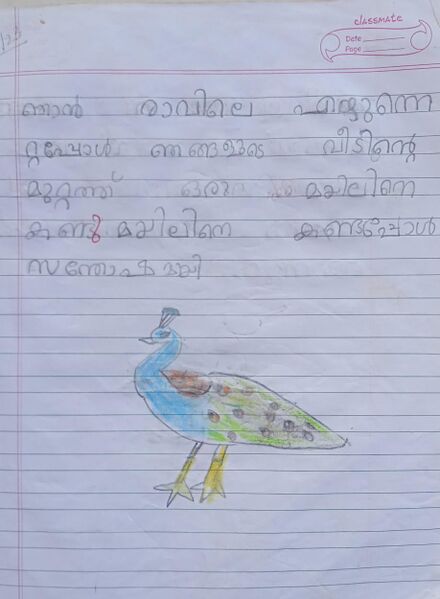 classmate
Date
Page
ഞാൻ രാവിലെ എഴുന്നെ
റ്റപ്പോൾ ഞങ്ങളുടെ വീടിന്റെ
മുറ്റത്ത് ഒരു മയിലിനെ
കണ്ടു മയിലിനെ കണ്ടപ്പോൾ
സന്തോഷമായി